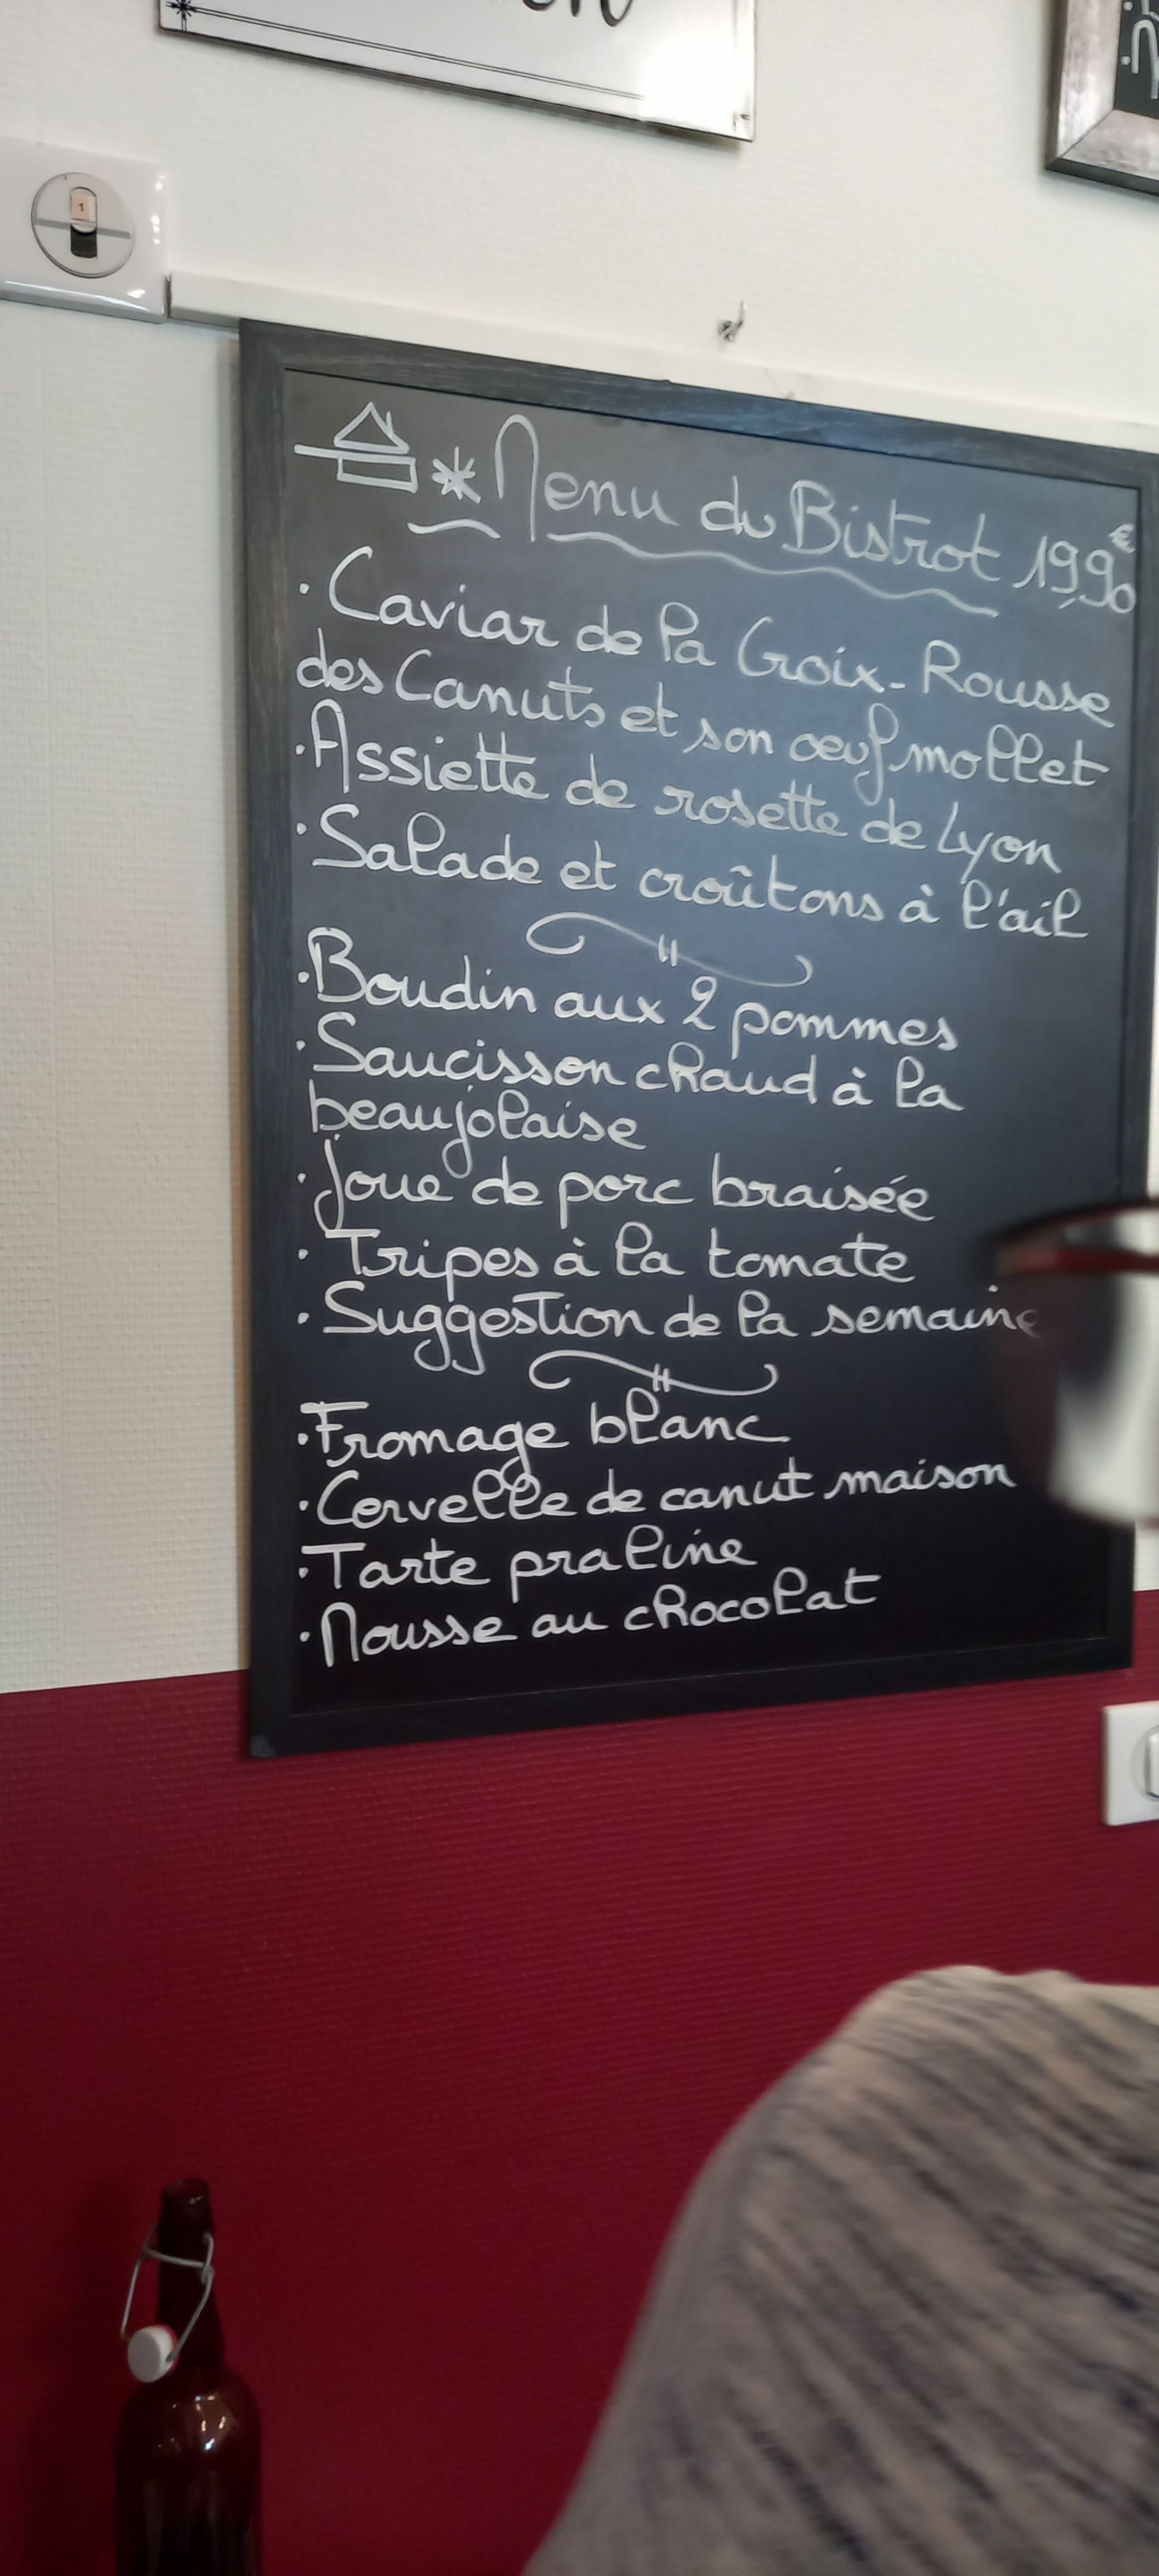 Menu du Bistrot 19,90€
· Caviar de la Croix-Rousse
des Canuts et son œuf mollet
· Assiette de rosette de Lyon
· Salade et croûtons à l'ail
· Boudin aux 2 pommes
· Saucisson chaud à la
beaujolaise
· Joue de porc braisée
· Tripes à la tomate
· Suggestion de la semaine
· Fromage blanc
· Cervelle de canut maison
· Tarte praline
· Mousse au chocolat